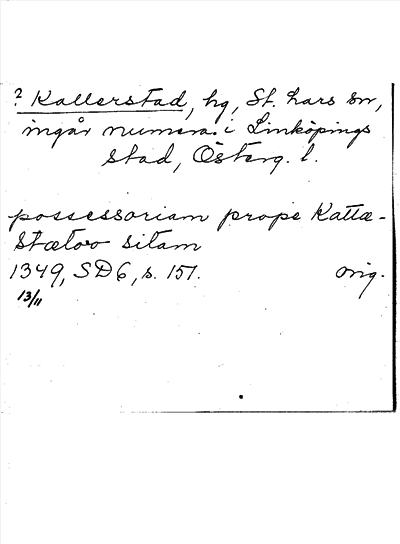 ? Kallerstad, hg, St. Lars sn,
ingår numera i Linköpings
stad, Österg. l.
possessoriam prope Kattæ-
stæto sitam
1349, SD6, s. 151. orig.
13/11